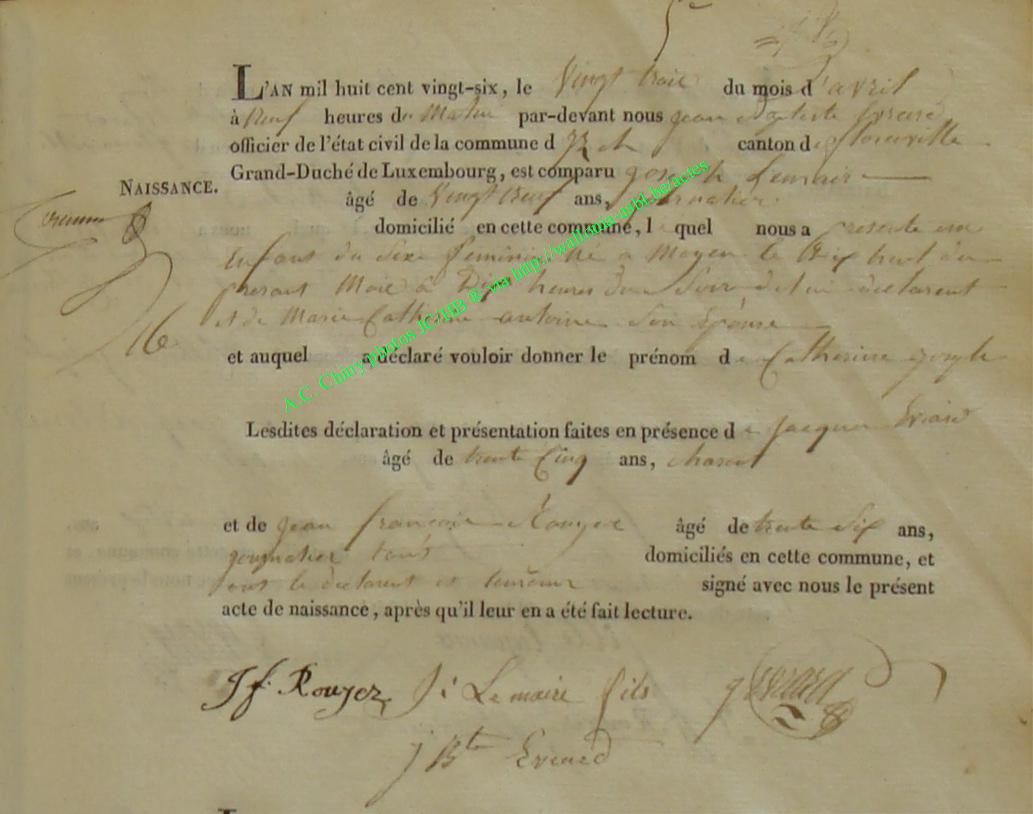 5e
L'AN mil huit cent vingt-six, le Vingt trois du mois d'avril
à Neuf heures du Matin par-devant nous jean Baptiste Evrard
officier de l'état civil de la commune d canton de florenville
Grand-Duché de Luxembourg, est comparu joseph Lemaire
NAISSANCE.
âgé de Vingt neuf ans, journalier
domicilié en cette commune, l quel nous a presenté un
Enfant du Sexe feminin né a Moyen le Dix huit du
present Mois à Dix heures du Soir de lui declarant
et de Marie Catherine antoine Son Epouse
16
et auquel a déclaré vouloir donner le prénom de Catherine joseph
Lesdites déclaration et présentation faites en présence de jacques Evrard
âgé de trente Cinq ans,
et de jean françois Rouyer âgé de trente Six ans,
journalier tous domiciliés en cette commune, et
ont le declarant et temoins signé avec nous le présent
acte de naissance, après qu'il leur en a été fait lecture.
J f. Rouyez J: Lemaire fils J Evrard
J Bte Evrard
A.C. Chiny photos JC/HB ® via http://wallonia-asbl.be/actes